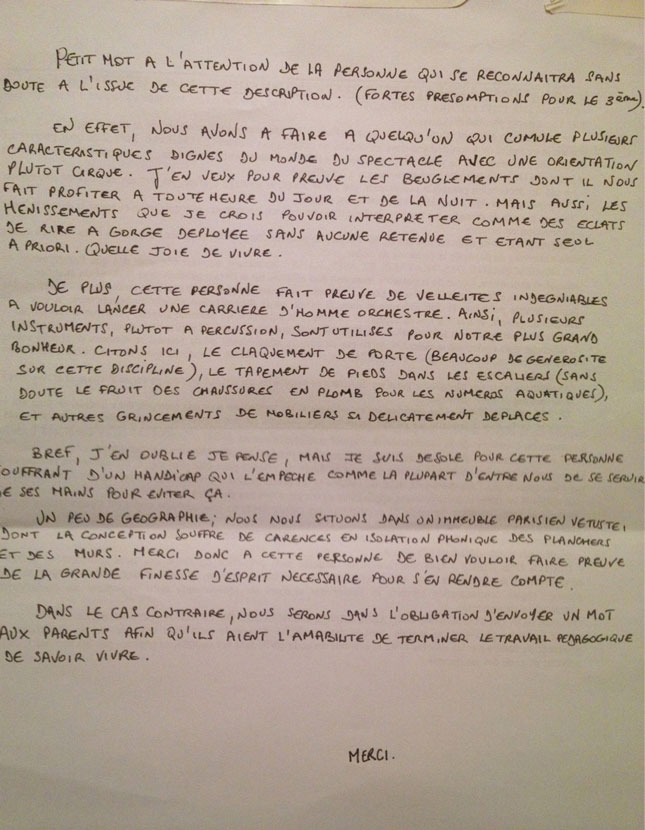 PETIT MOT A L'ATTENTION DE LA PERSONNE QUI SE RECONNAITRA SANS
DOUTE A L'ISSUE DE CETTE DESCRIPTION. (FORTES PRESOMPTIONS POUR LE 3ème).
EN EFFET, NOUS AVONS A FAIRE A QUELQU'UN QUI CUMULE PLUSIEURS
CARACTERISTIQUES DIGNES DU MONDE DU SPECTACLE AVEC UNE ORIENTATION
PLUTOT CIRQUE. J'EN VEUX POUR PREUVE LES BEUGLEMENTS DONT IL NOUS
FAIT PROFITER A TOUTE HEURE DU JOUR ET DE LA NUIT. MAIS AUSSI LES
HENISSEMENTS QUE JE CROIS POUVOIR INTERPRETER COMME DES ECLATS
DE RIRE A GORGE DEPLOYEE SANS AUCUNE RETENUE ET ETANT SEUL
A PRIORI. QUELLE JOIE DE VIVRE.
DE PLUS, CETTE PERSONNE FAIT PREUVE DE VELLEITES INDEGNIABLES
A VOULOIR LANCER UNE CARRIERE D'HOMME ORCHESTRE. AINSI, PLUSIEURS
INSTRUMENTS, PLUTOT A PERCUSSION, SONT UTILISES POUR NOTRE PLUS GRAND
BONHEUR. CITONS ICI, LE CLAQUEMENT DE PORTE (BEAUCOUP DE GENEROSITE
SUR CETTE DISCIPLINE), LE TAPEMENT DE PIEDS DANS LES ESCALIERS (SANS
DOUTE LE FRUIT DES CHAUSSURES EN PLOMB POUR LES NUMEROS AQUATIQUES),
ET AUTRES GRINCEMENTS DE MOBILIERS SI DELICATEMENT DEPLACES.
BREF, J'EN OUBLIE JE PENSE, MAIS JE SUIS DESOLE POUR CETTE PERSONNE
SOUFFRANT D'UN HANDICAP QUI L'EMPECHE COMME LA PLUPART D'ENTRE NOUS DE SE SERVIR
DE SES MAINS POUR EVITER ÇA.
UN PEU DE GEOGRAPHIE; NOUS NOUS SITUONS DANS UN IMMEUBLE PARISIEN VETUSTE,
DONT LA CONCEPTION SOUFFRE DE CARENCES EN ISOLATION PHONIQUE DES PLANCHERS
ET DES MURS. MERCI DONC A CETTE PERSONNE DE BIEN VOULOIR FAIRE PREUVE
DE LA GRANDE FINESSE D'ESPRIT NECESSAIRE POUR S'EN RENDRE COMPTE.
DANS LE CAS CONTRAIRE, NOUS SERONS DANS L'OBLIGATION D'ENVOYER UN MOT
AUX PARENTS AFIN QU'ILS AIENT L'AMABILITE DE TERMINER LE TRAVAIL PEDAGOGIQUE
DE SAVOIR VIVRE.
MERCI.